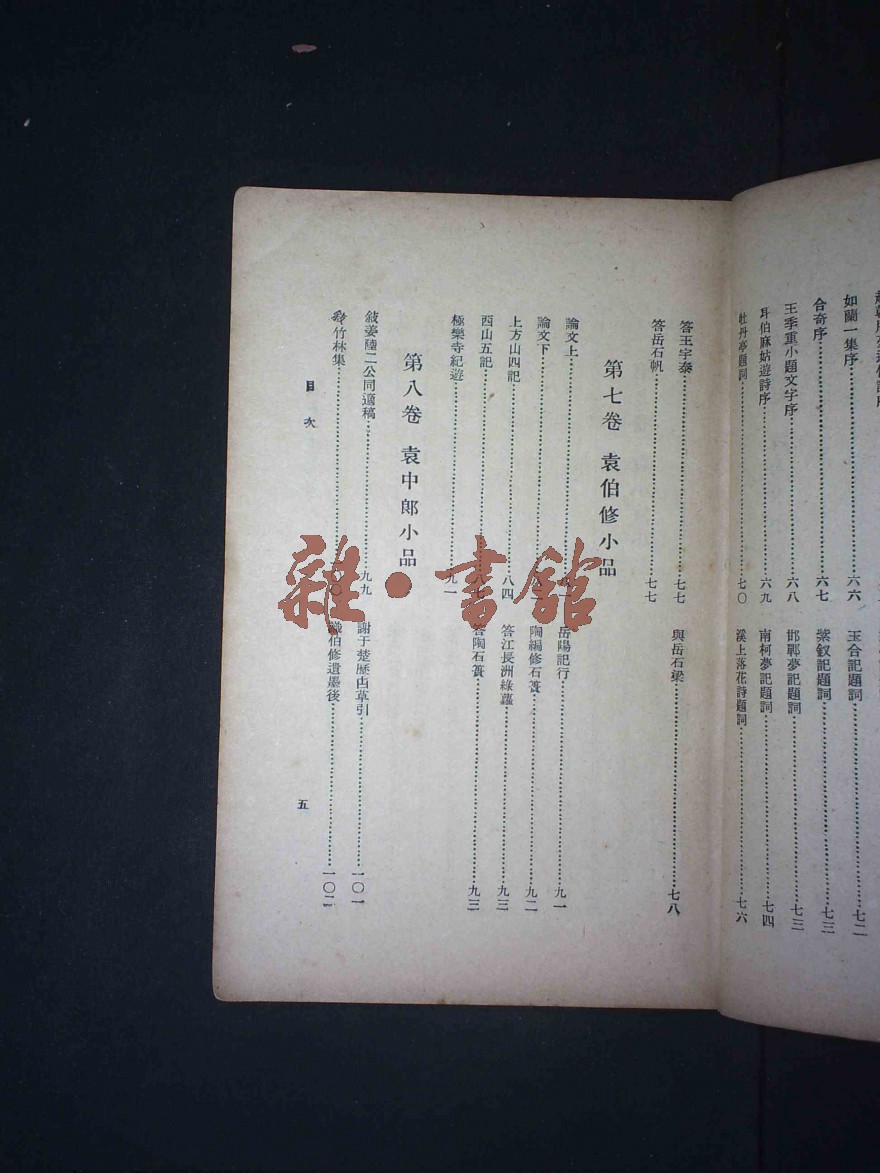 如蘭一集序……六六
玉合記題詞……七二
合奇序……六七
紫釵記題詞……七三
王季重小題文字序……六八
邯鄲夢記題詞……七三
耳伯麻姑遊詩序……六九
南柯夢記題詞……七四
牡丹亭題詞……七〇
溪上落花詩題詞……七六
答王宇泰……七七
與岳石梁……七八
答岳石帆……七七
第七卷 袁伯修小品
論文上
岳陽記行……九一
論文下
陶編修石簣……九二
上方山四記……八四
答江長洲綠蘿……九三
西山五記……八七
答陶石簣……九三
極樂寺紀遊……九一
第八卷 袁中郎小品
敍姜陸二公同適稿……九九
謝于楚歷山草引……一〇一
竹林集
識伯修遺墨後……一〇二
目次
五
雜·書館